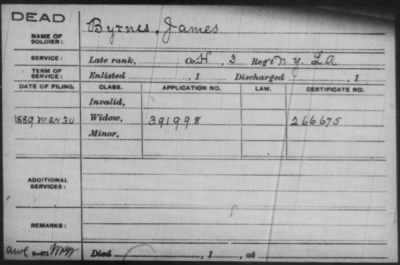 DEAD
NAME OF SOLDIER: Byrnes, James
SERVICE: Late rank, Co. H, 3 Reg't N.Y. L.A
TERM OF SERVICE: Enlisted , 1 Discharged , 1
DATE OF FILING. CLASS. APPLICATION NO. LAW. CERTIFICATE NO.
Invalid,
1889 Mar 30 Widow, 391998 266675
Minor,
ADDITIONAL SERVICES:
REMARKS:
Died , 1 , at